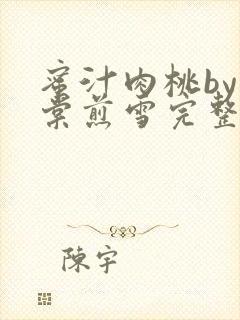 蜜汁肉桃by
棠煎雪完整
陳宇